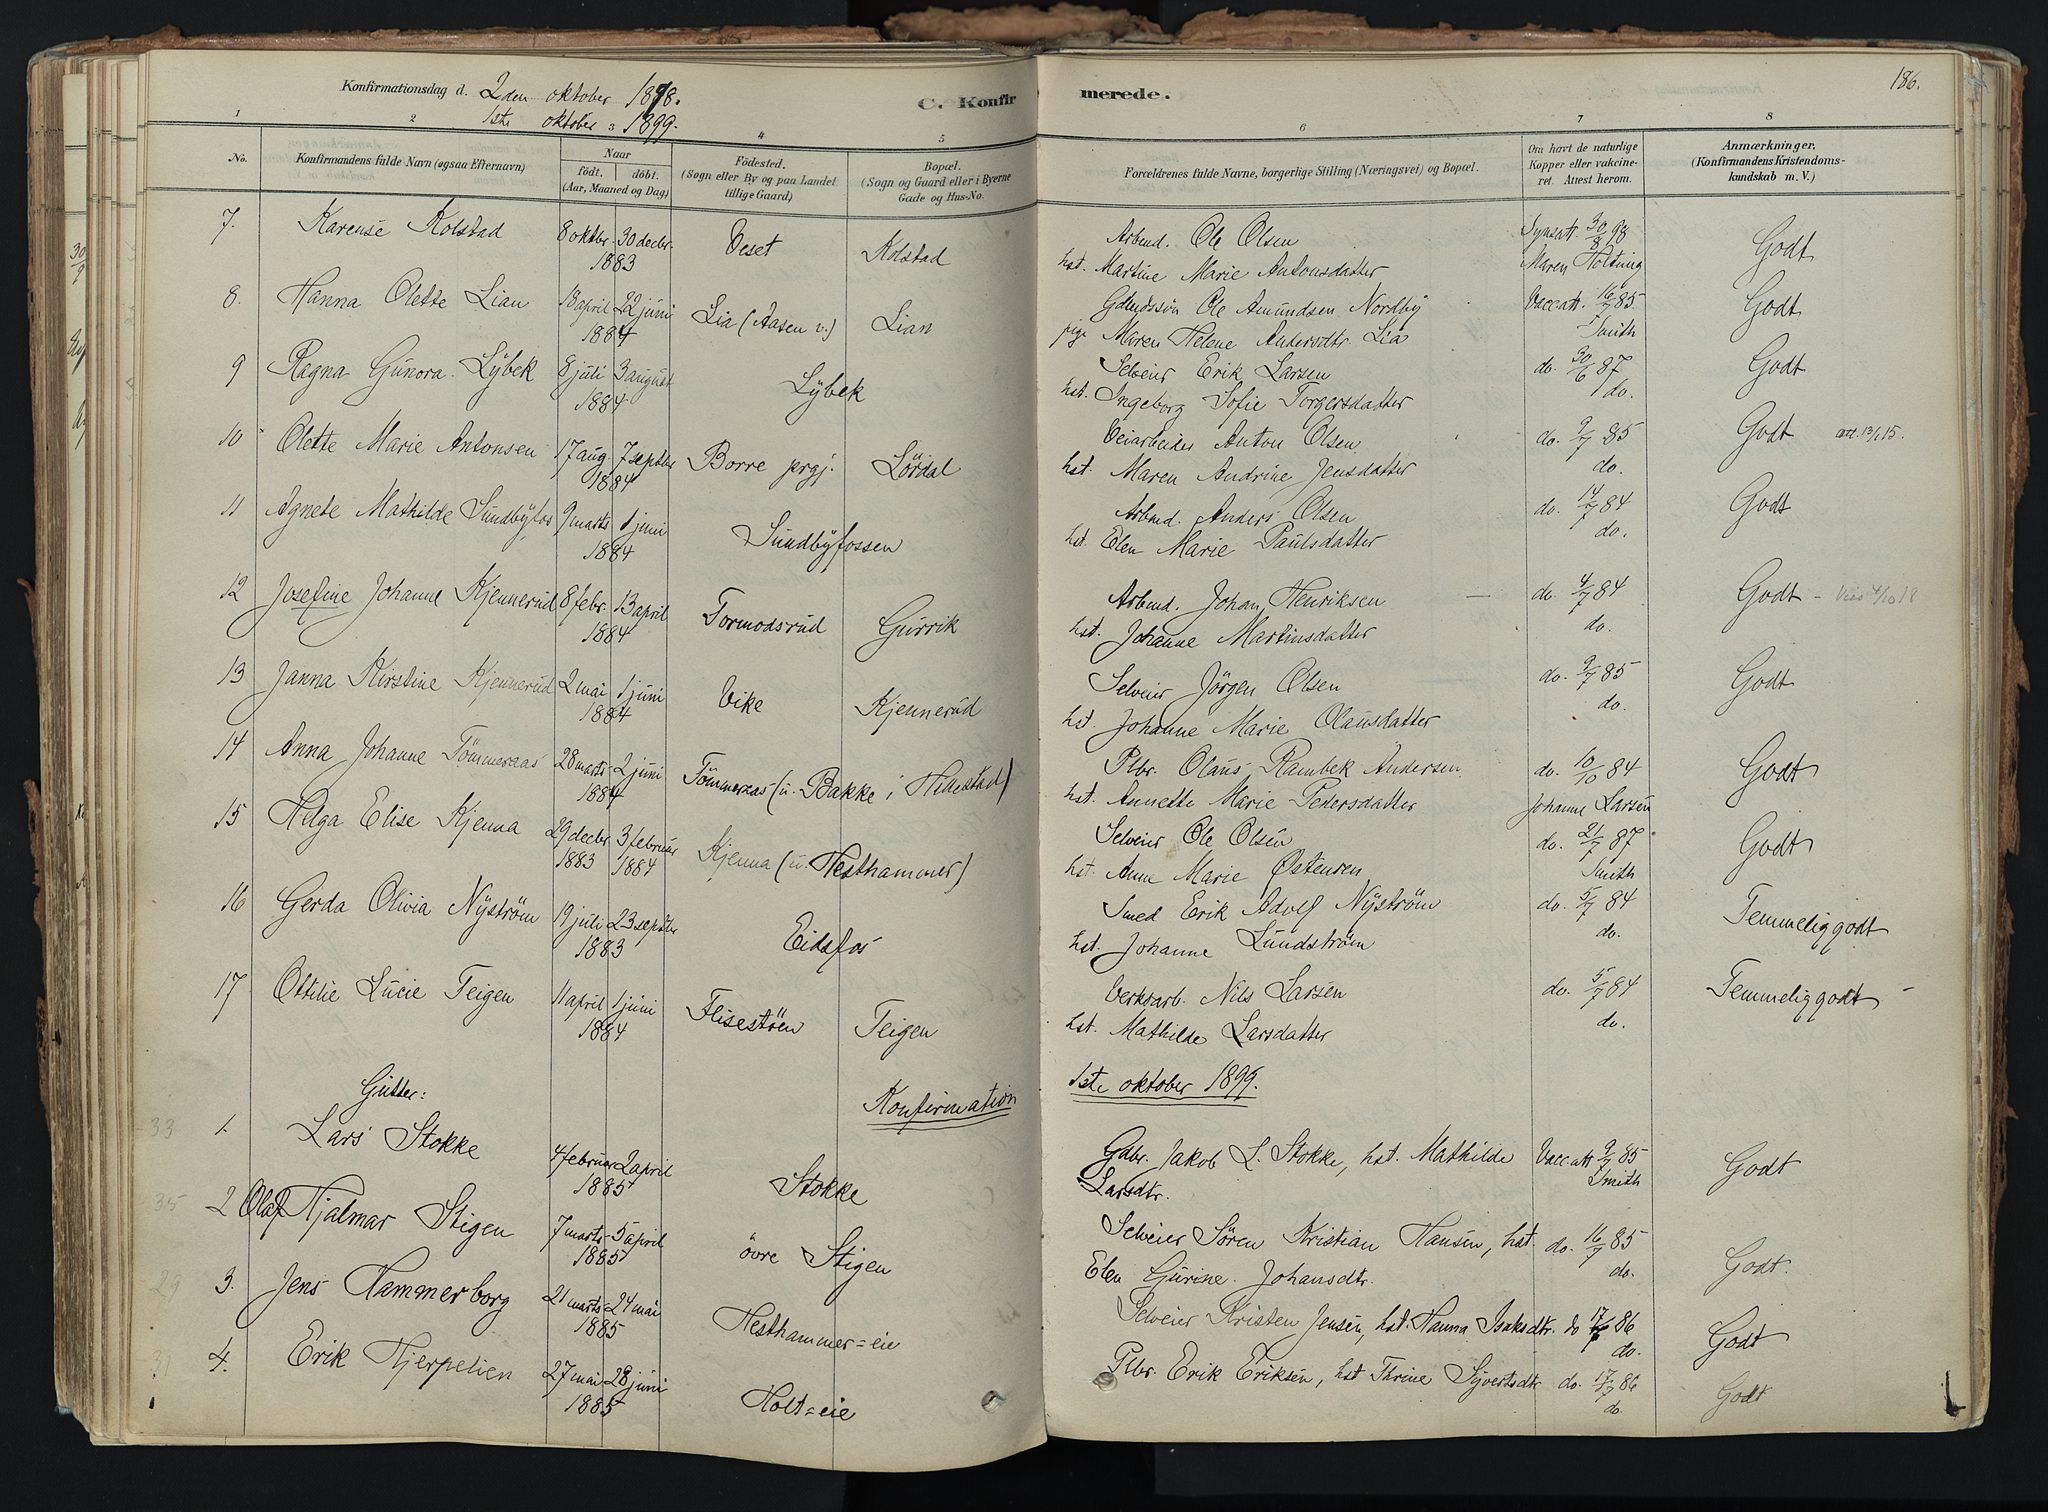 Konfirmationsdag d. 2den oktober 1898.
1ste oktober 1899.
C. Konfirmerede.
186.
1 2 3 4 5 6 7 8
No. Konfirmandens fulde Navn (ogsaa Efternavn) Naar født. døbt. (Aar, Maaned og Dag) Fødested. (Sogn eller By og paa Landet tillige Gaard) Bopæl. (Sogn og Gaard eller i Byerne Gade og Hus-No. Forældrenes fulde Navne, borgerlige Stilling (Næringsvei) og Bopæl. Om havt de naturlige Kopper eller vakcineret. Attest herom. Anmærkninger. (Konfirmandens Kristendomskundskab m. V.)
7. Karense Kolstad 8 oktbr. 30 decbr. Veset Kolstad Arbmd. Ole Olsen 30/8 98 Godt
1883 hst. Martine Marie Antonsdatter Maren Holtung
8. Hanna Olette Lian 18 april 22 juni Lia (Aasen v.) Lian Gdmdssøn Ole Amundsen Nordby Vacc.att. 16/7 85 Godt
1884 pige Maren Helene Andersdtr. Lia Smith
9 Ragna Gunora Lybek 8 juli 3 august Lybek Selveier Erik Larsen do. 30/6 87 Godt
1884 hst. Ingeborg Sofie Torgersdatter do.
10 Olette Marie Antonsen 17 aug. 7 septbr Borre prgj. Lørdal Veiarbeider Anton Olsen do. 9/7 85 Godt att. 13/1 15.
1884 hst. Maren Andrine Jensdatter do.
11 Agnete Mathilde Sundbyfos 9 marts 1 juni Sundbyfossen Arbmd. Anders Olsen do. 14/7 84 Godt
1884 hst. Elen Marie Paulsdatter do.
12 Josefine Johanne Kjennerud 8 febr. 13 april Tormodsrud Gurrik Arbmd. Johan Henriksen do. 4/7 84 Godt
1884 hst. Johanne Martinsdatter do.
13 Janna Kirstine Kjennerud 2 mai 1 juni Vike Kjennerud Selveier Jørgen Olsen do. 9/7 85 Godt
1884 hst. Johanne Marie Olausdatter do.
14 Anna Johanne Tømmeraas 28 marts 2 juni Tømmeraas (u. Bakke i Hillestad) Plbr. Olaus Rambek Andersen do. 10/10 84 Godt
1884 hst. Annette Marie Pedersdatter Johanne Larsen
15 Helga Elise Kjenna 29 decbr 3 februar Kjenna (u. Hesthammer) Selveier Ole Olsen do. 21/7 87 Godt
1883 1884 hst. Anne Marie Østensen Smith
16 Gerda Olivia Nyström 19 juli 23 septbr Eidsfos Smed Erik Adolf Nyström do. 5/7 84 Temmelig godt
1883 hst. Johanne Lundström do.
17 Ottilie Lucie Teigen 11 april 1 juni Flisestrøen Teigen Verksarb. Nils Larsen do. 5/7 84 Temmelig godt
1884 hst. Mathilde Larsdatter do.
Gutter: Konfirmation 1ste oktober 1899.
33 1. Lars Stokke 4 februar 2 april Stokke Gdbr. Jakob L. Stokke, hst. Mathilde Vacc.att 9/7 85 Godt
1885 Larsdtr. Smith
35 2 Olaf Hjalmar Stigen 7 marts 5 april øvre Stigen Selveier Søren Kristian Hansen, hst. do. 16/7 85 Godt.
1885 Elen Gurine Johansdtr. do.
29 3. Jens Hammerborg 21 marts 24 mai Hesthammer=eie Selveier Kristen Jensen, hst. Hanna Isaksdtr. do 17/7 86 Godt
1885 do.
31 4. Erik Hjerpelien 27 mai 28 juni Holt=eie Plbr. Erik Eriksen, hst Thrine Syvertsdtr do. 17/7 86 Godt
1885 do.